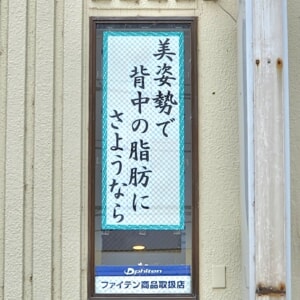 美姿勢で
背中の脂肪に
さようなら
phiten
ファイテン商品取扱店